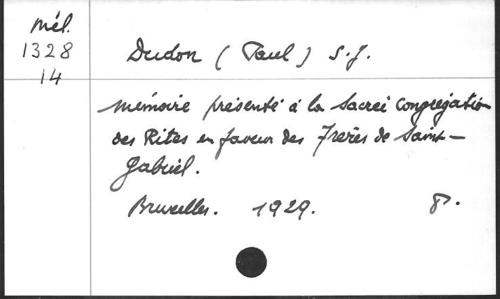 Mél.
1328
14
Dudon (Paul) S.J.
Mémoire présenté à la Sacrée Congrégation
des Rites en faveur des Frères de Saint-
Gabriel.
Bruxelles. 1929. 8°.